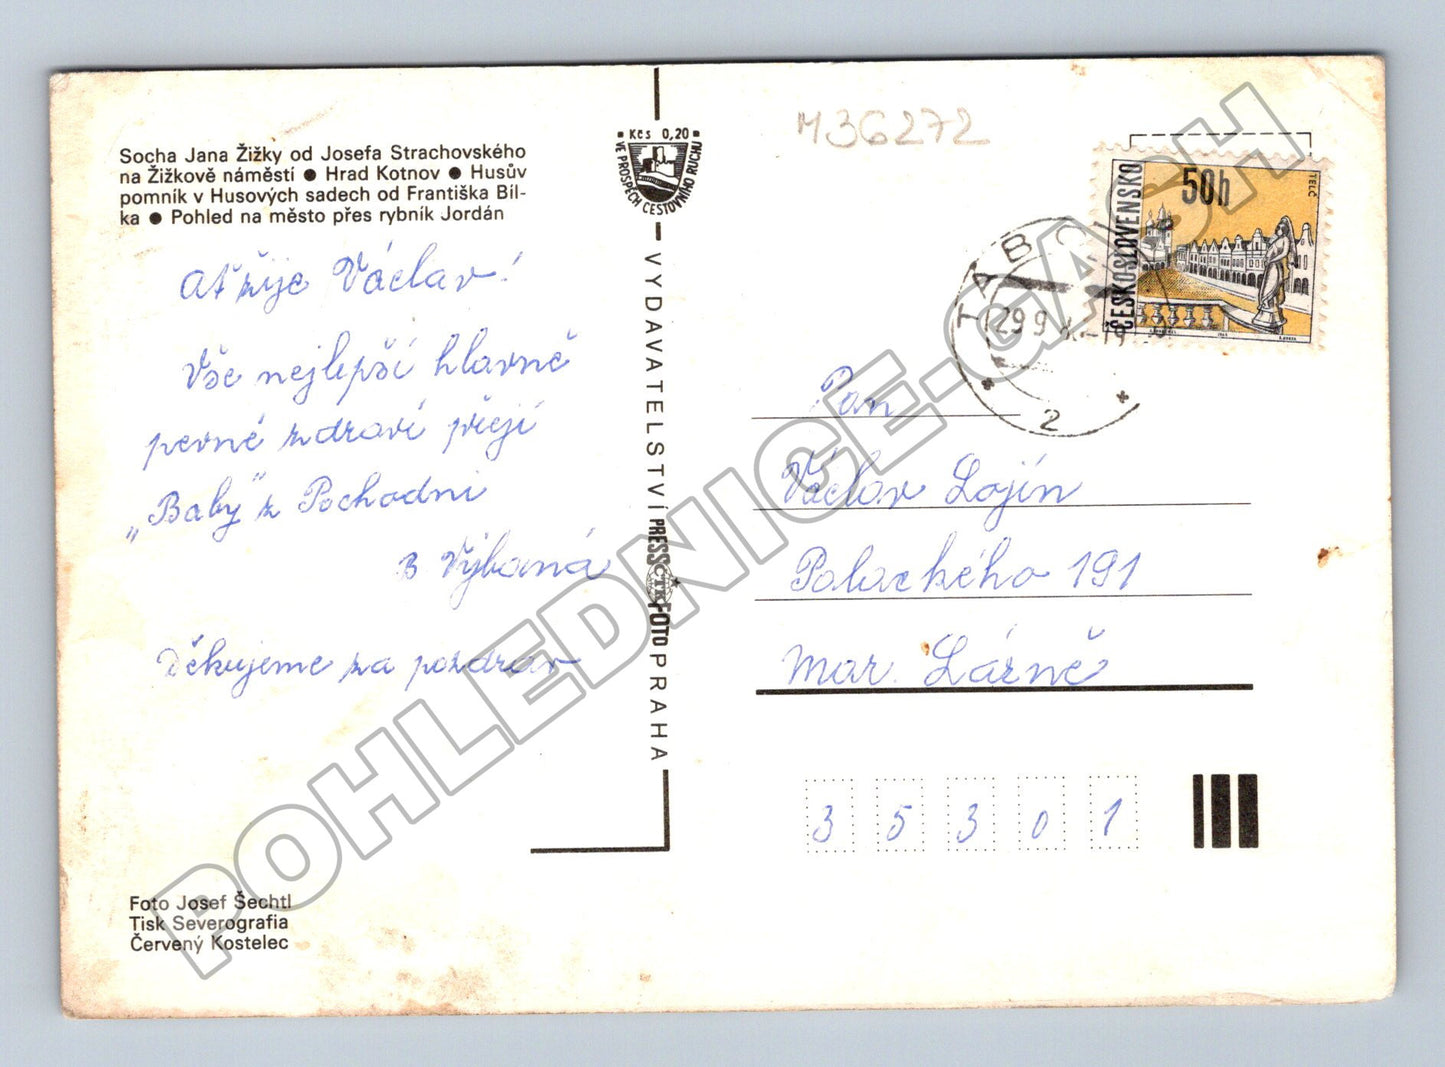 Socha Jana Žižky od Josefa Strachovského
na Žižkově náměstí ● Hrad Kotnov ● Husův
pomník v Husových sadech od Františka Bíl-
ka ● Pohled na město přes rybník Jordán
Ať žije Václav!
Vše nejlepší hlavně
pevné zdraví přejí
„Baby" z Pochodni
B Výborná
Děkujeme za pozdrav
Foto Josef Šechtl
Tisk Severografia
Červený Kostelec
Kčs 0,20
VE PROSPĚCH CESTOVNÍHO RUCHU
VYDAVATELSTVÍ PRESSFOTO PRAHA
ČTK
M36272
ČESKOSLOVENSKO
50h
TELČ
TÁBOR
29 9
2
Pan
Václav Lojín
Palackého 191
Mar. Lázně
35301
POHLEDNICE-GASH